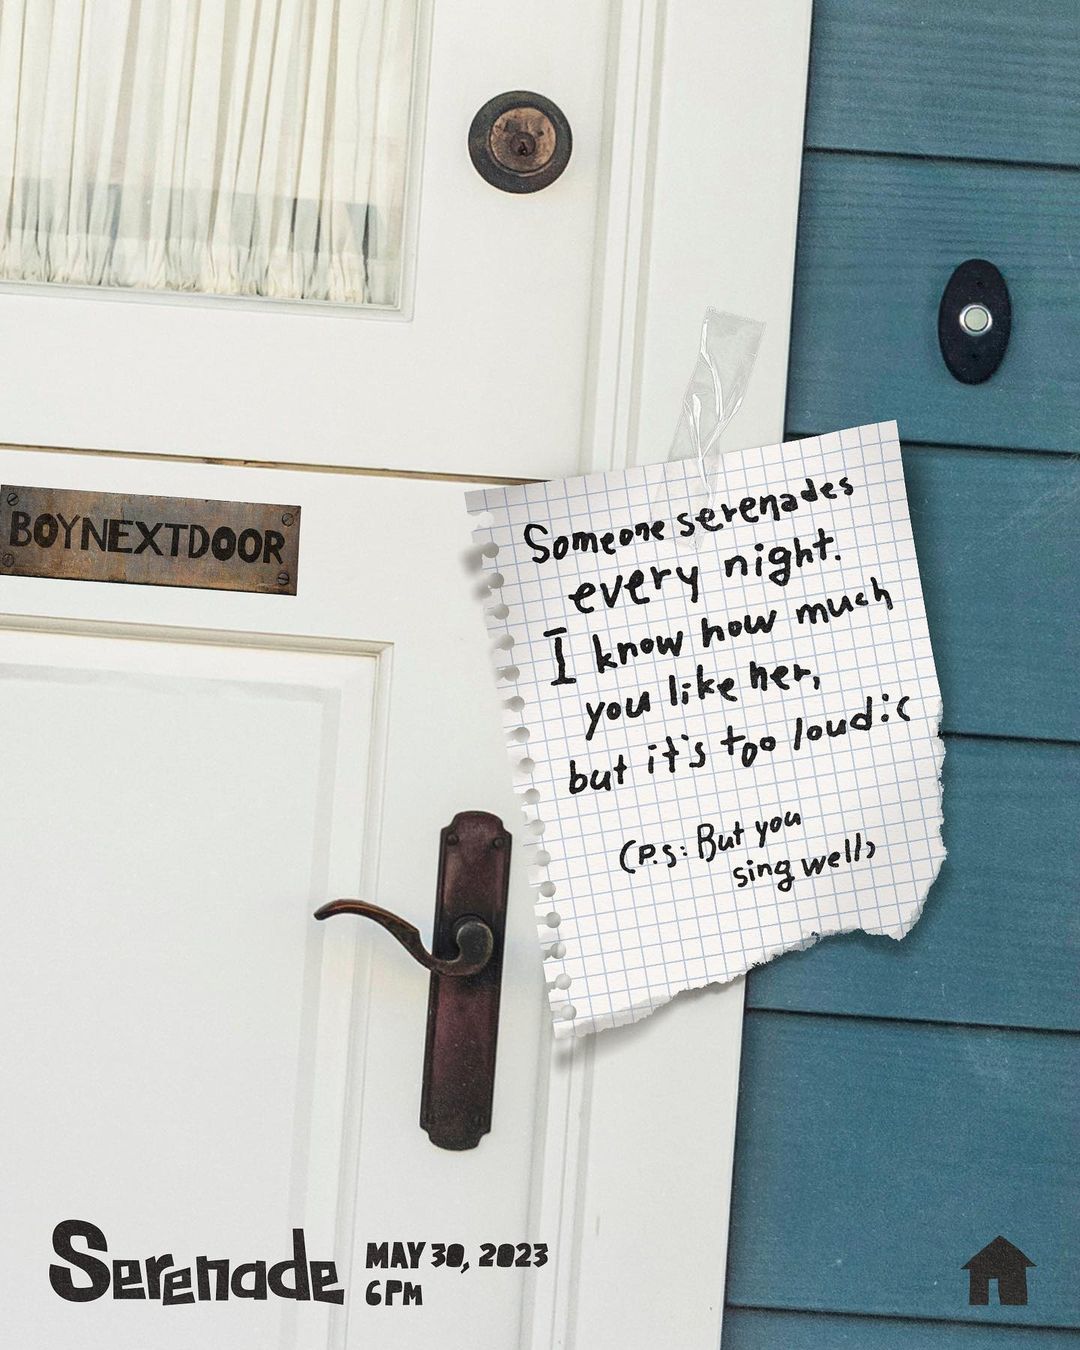 BOYNEXTDOOR
Someone serenades
every night.
I know how much
you like her,
but it's too loud:(
(P.S: But you
sing well)
Serenade
MAY 30, 2023
6PM